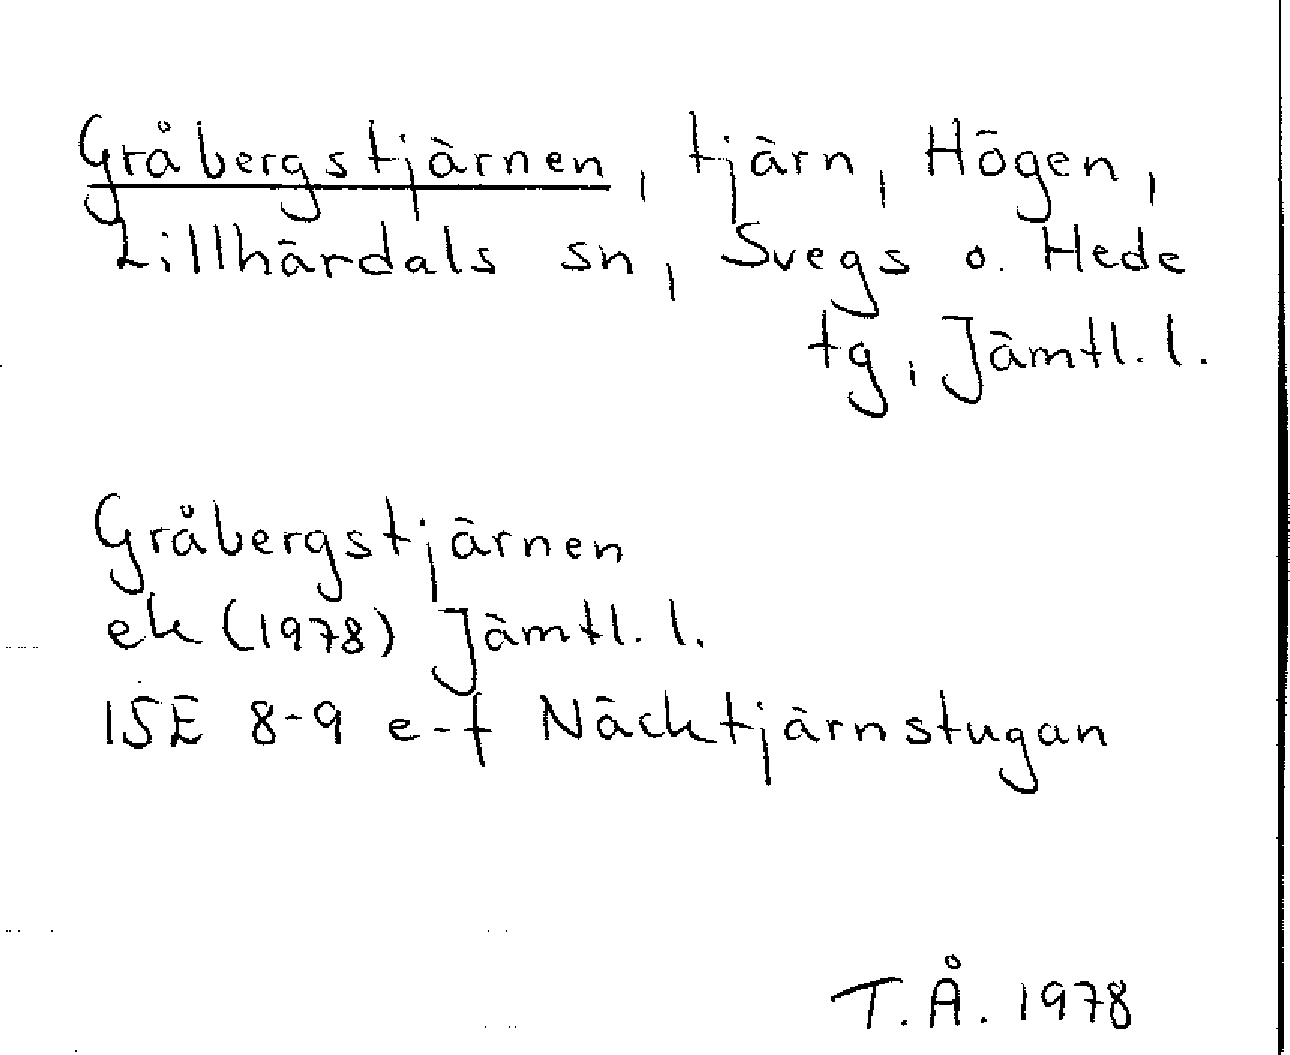 Gråbergstjärnen, tjärn, Högen,
Lillhärdals sn, Svegs o. Hede
tg, Jämtl. l.
Gråbergstjärnen
ek (1978) Jämtl. l.
15E 8-9 e-f Näcktjärnstugan
T.Å. 1978